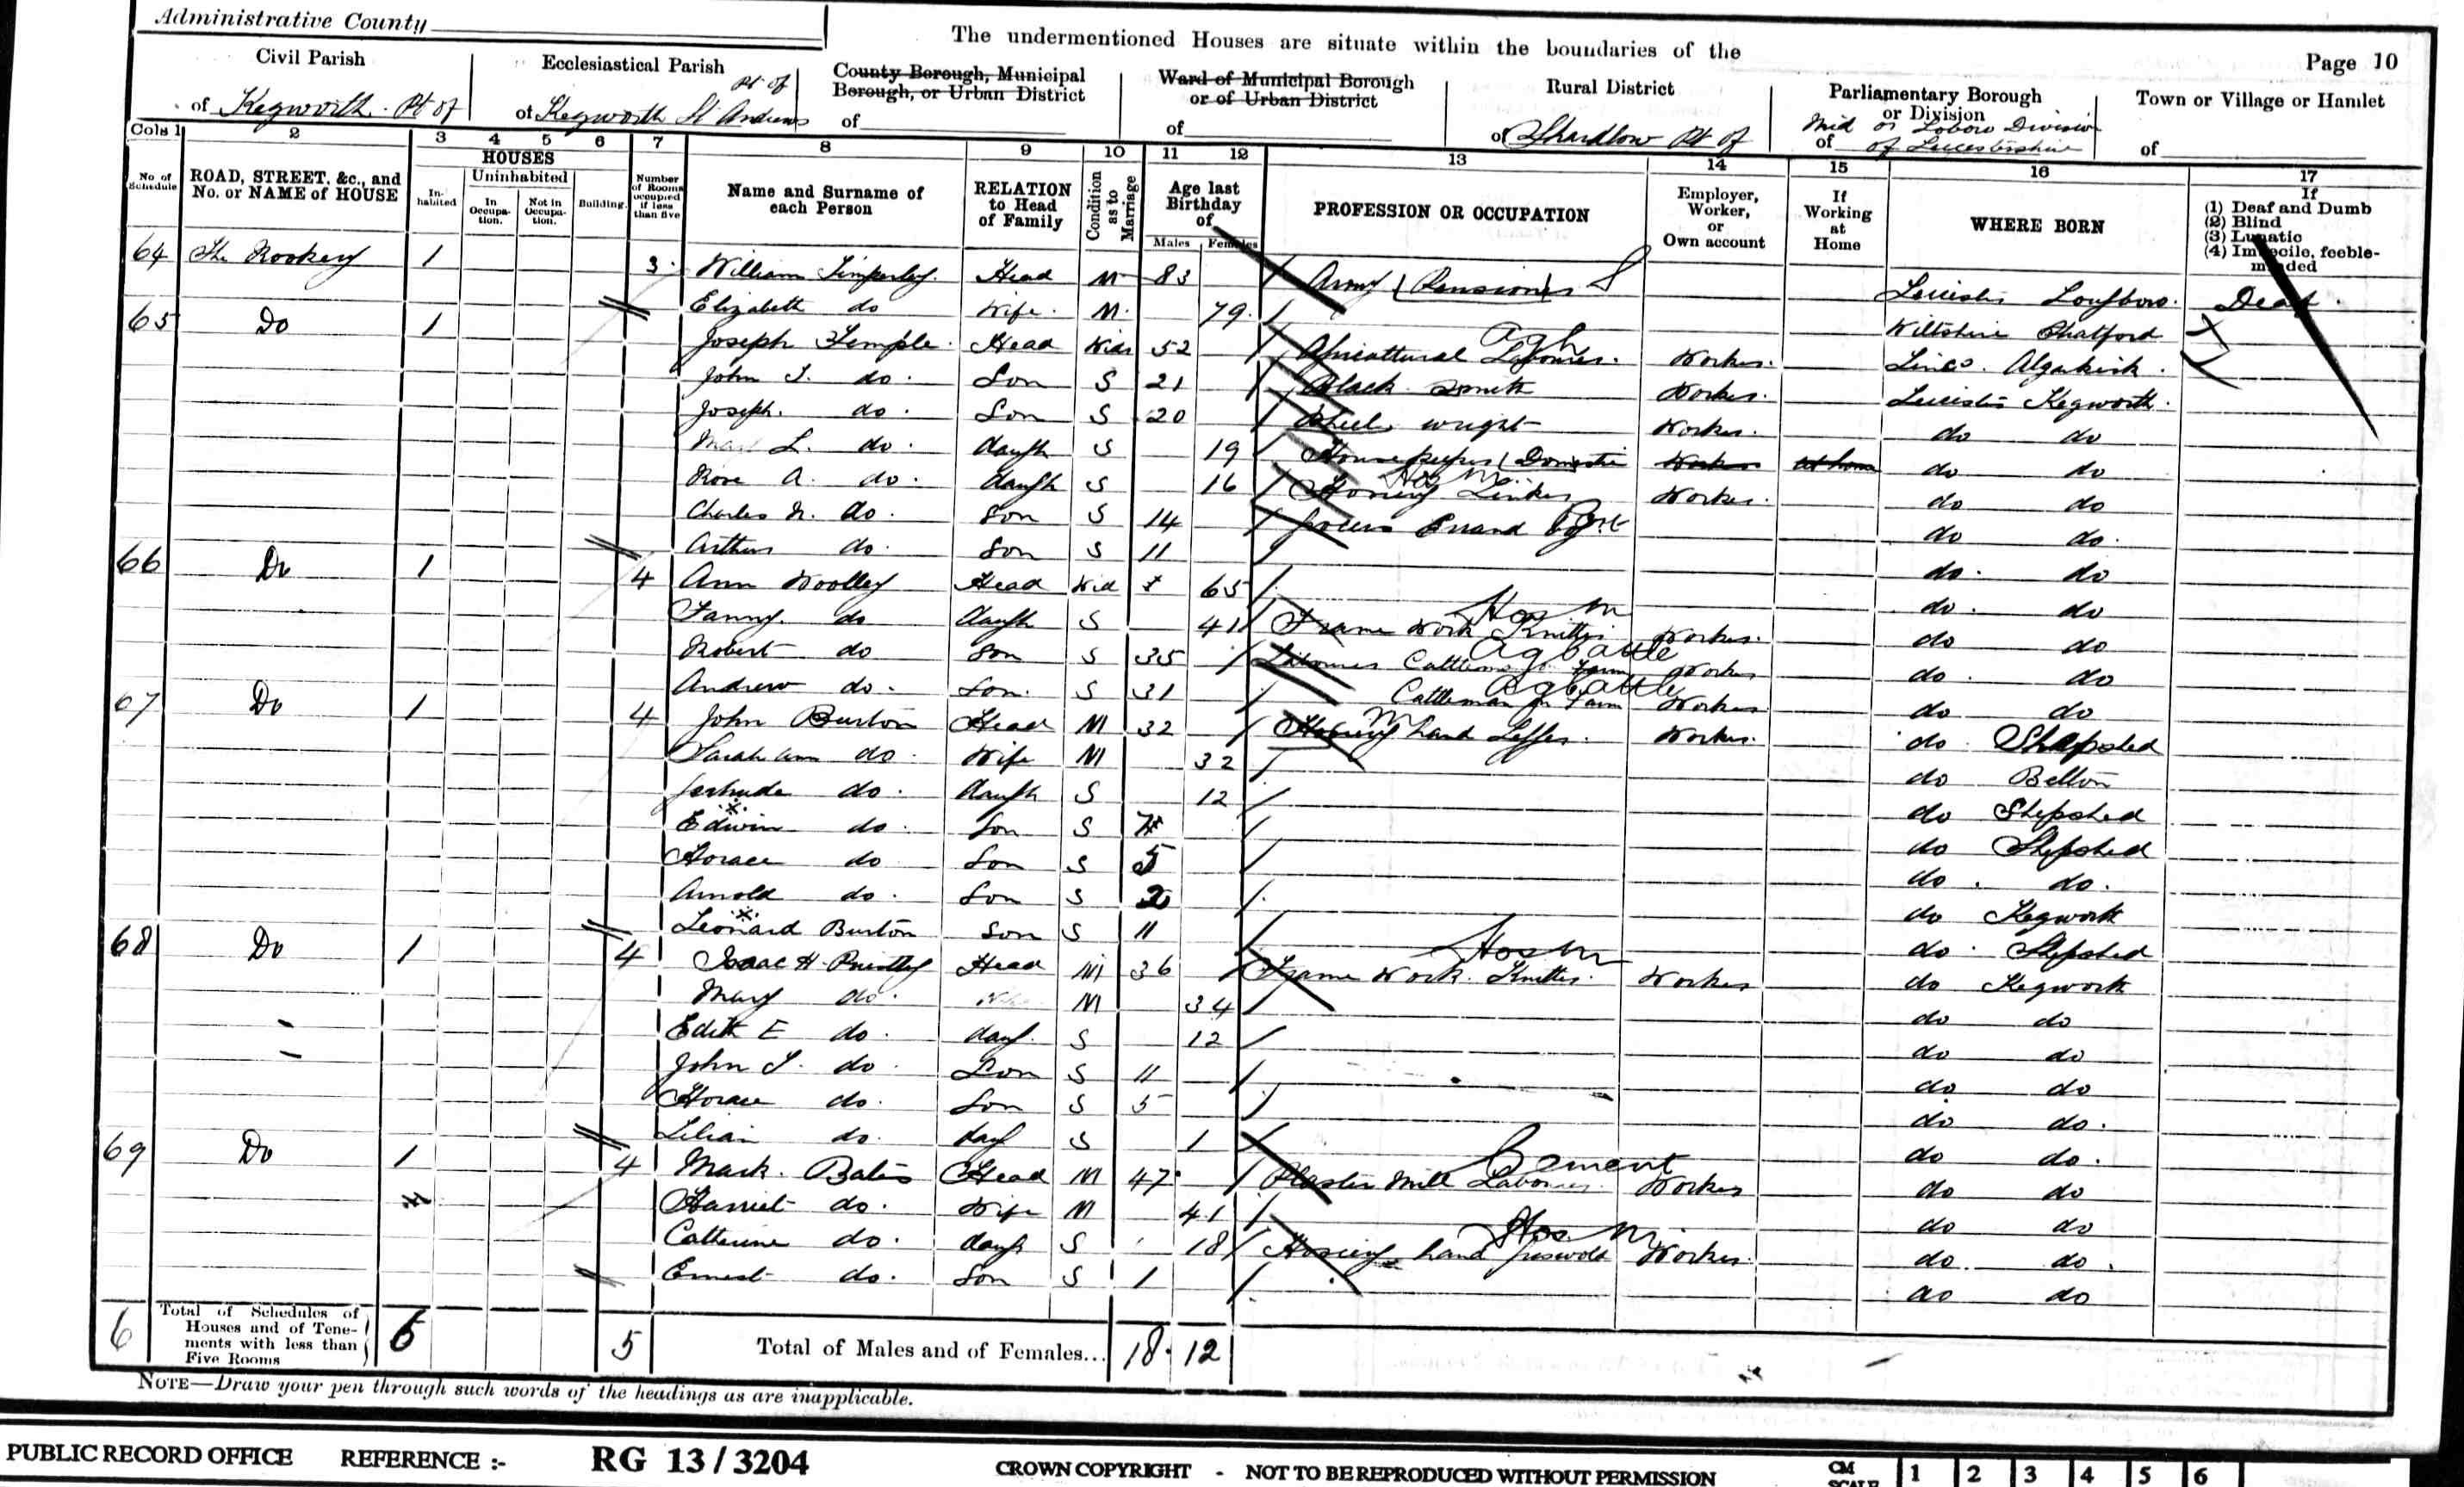 Administrative County
The undermentioned Houses are situate within the boundaries of the
Page 10
Civil Parish
of Kegworth. Pt of
Ecclesiastical Parish
Pt of
of Kegworth St Andrews
County Borough, Municipal
Borough, or Urban District
of
Ward of Municipal Borough
or of Urban District
of
Rural District
of Shardlow Pt of
Parliamentary Borough
or Division
Mid or Lboro Division
of of Leicestershire
Town or Village or Hamlet
of
Cols 1 2 3 4 5 6 7 8 9 10 11 12 13 14 15 16 17
No. of Schedule
ROAD, STREET, &c., and No. or NAME of HOUSE
HOUSES
In-habited
Uninhabited
In Occupa-tion.
Not in Occupa-tion.
Building.
Number of Rooms occupied if less than five
Name and Surname of each Person
RELATION to Head of Family
Condition as to Marriage
Age last Birthday of
Males Females
PROFESSION OR OCCUPATION
Employer, Worker, or Own account
If Working at Home
WHERE BORN
If
(1) Deaf and Dumb
(2) Blind
(3) Lunatic
(4) Imbecile, feeble-minded
64 The Rookery 1 3 William Timperley Head M 83 Army (Pensioner) Leicester Loughboro. Deaf.
Elizabeth do Wife. M. 79. Wiltshire
65 Do 1 Joseph Temple. Head Widr 52 Agricultural Labourer. Agh Worker. Lincs. Algakirk.
John T. do. Son S 21 Black Smith Worker. Leicester Kegworth.
Joseph. do. Son S 20 Wheel wright Worker. do do
L. do. daugh S 19 Housekeeper (Domestic Worker At home do do
Rose A. do. daugh S 16 Hosiery Linker Hos M. Worker. do do
Charles N. do. Son S 14 Grocers Errand Boy do do.
Arthur do. Son S 11 do. do
66 Do 1 4 Ann Woolley Head Wid 65 do. do
Fanny. do daugh S 41 Frame Work Knitter Hos M Worker. do do
Robert do Son S 35 Labourer Cattleman on Farm Ag Cattle Worker do. do
Andrew do. Son. S 31 Cattleman on Farm Ag Cattle Worker do do
67 Do 1 4 John Burton Head M 32 Hosiery hand M Worker. do. Shepshed
Sarah Ann do Wife M 32 do Belton
Gertrude do. daugh S 12 do Shepshed
Edwin do. Son S 7 do Shepshed
Horace do Son S 5 do. do.
Arnold do. Son S 2 do Kegworth
Leonard Burton Son S 11 do. Shepshed
68 Do 1 4 Isaac H. Priestley Head M 36 Frame Work Knitter. Hos M Worker do Kegworth
Mary do. M 34 do do
Edith E do. dau. S 12 do do
John T. do. Son S 11 do do
Horace do. Son S 5 do do.
Lilian do. dau S 1 do do.
69 Do 1 4 Mark. Bates Head M 47. Plaster Mill Labourer. Cement Worker do do
Harriet do. Wife M 41 do do
Catherine do. daugh S 18 Hosiery hand Griswold Hos M. Worker. do. do.
Ernest do. Son S 1 do do
6 Total of Schedules of Houses and of Tene-ments with less than Five Rooms 6 5 Total of Males and of Females... 18. 12
NOTE—Draw your pen through such words of the headings as are inapplicable.
PUBLIC RECORD OFFICE REFERENCE :- RG 13 / 3204 CROWN COPYRIGHT - NOT TO BE REPRODUCED WITHOUT PERMISSION CM SCALE 1 2 3 4 5 6